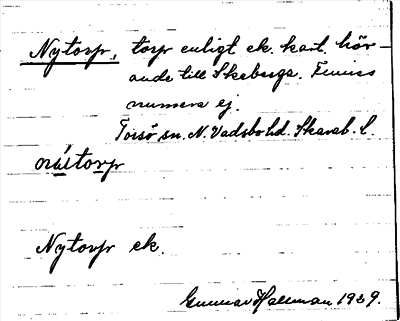 Nytorp, torp enligt ek. kart. hör-
ande till Skeberga. Finnes
numera ej.
Torsö sn. N. Vadsbo hd. Skarab. l.
nýtorp
Nytorp ek.
Gunnar Hallman 1939.